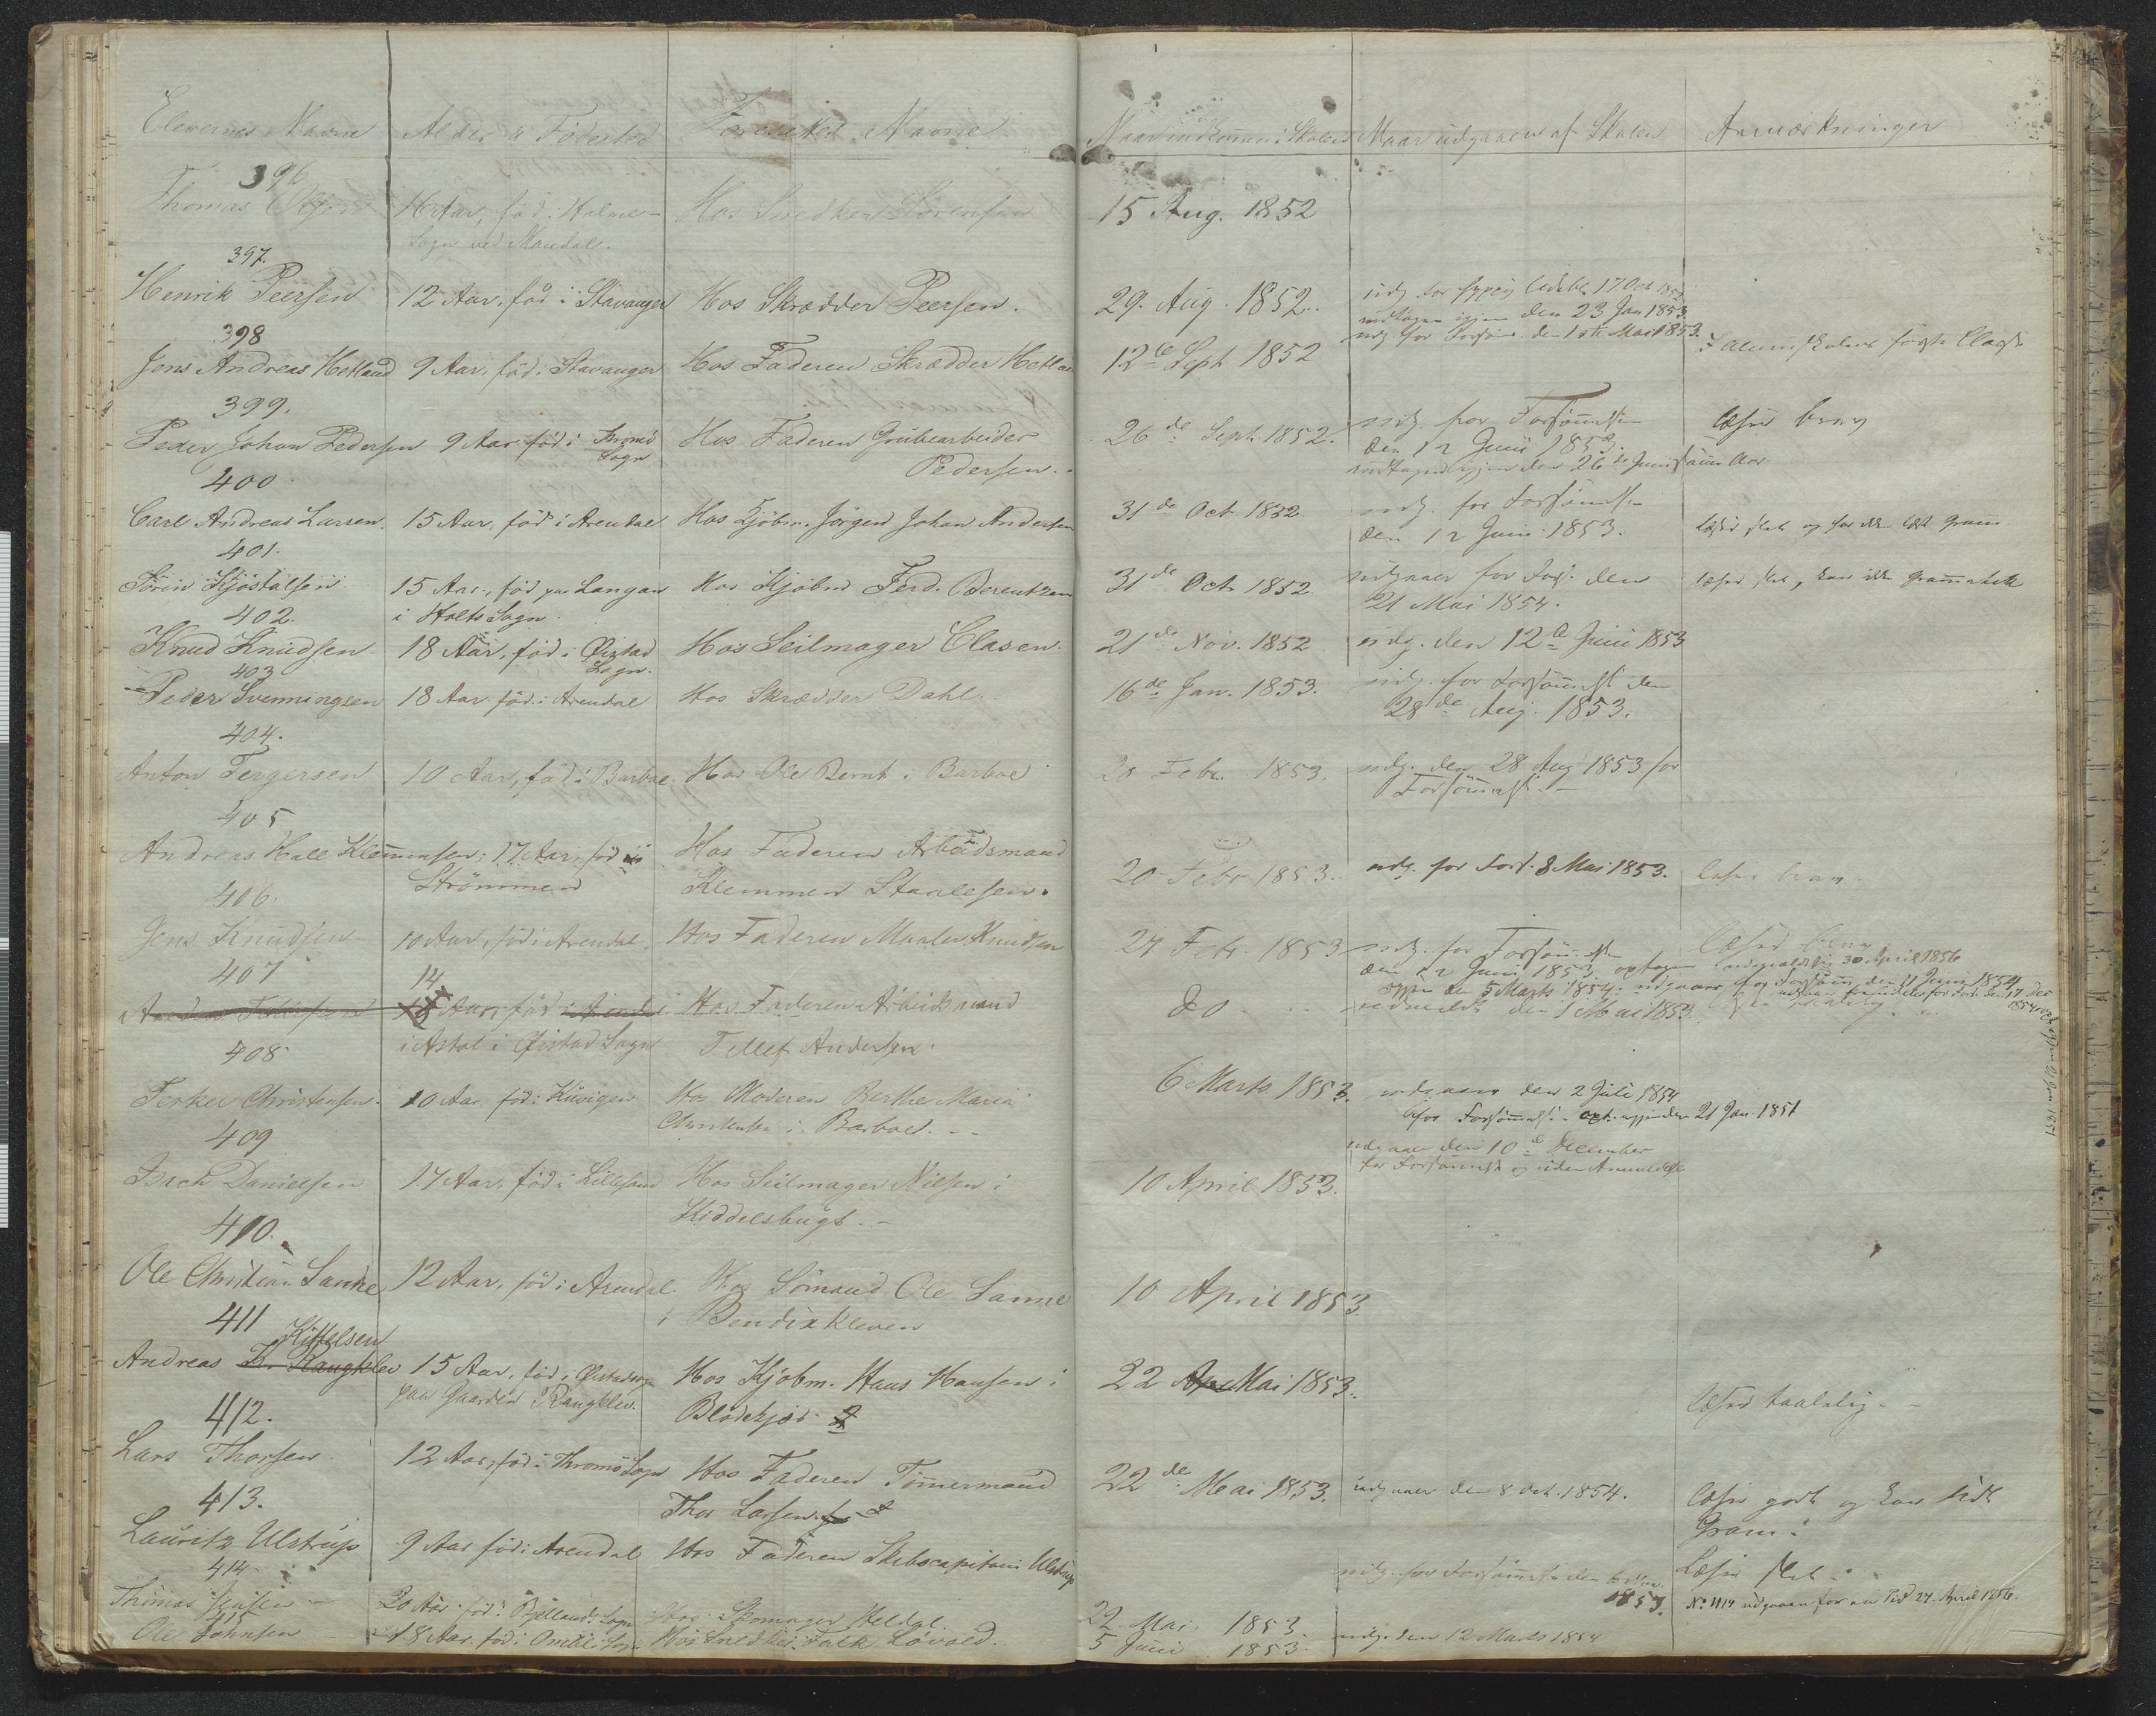 Elevernes Navne Alder & Födested Foresattes Navne Naar indkommen i Skolen Naar udgaaen af Skolen Anmærkninger
396
Thomas Olsen 16 Aar, föd i Halme- Hos Snedker Sörensen 15 Aug. 1852
Sogn ved Mandal.
397.
Henrik Peersen 12 Aar, föd i Stavanger Hos Skrædder Peersen. 29. Aug. 1852. udg. for 17 Oct 1852
modtagen igjen den 23 Jan 1853.
udg. for Forsöm. den 1ste Mai 1853.
398
Jens Andreas Hetland 9 Aar, föd i Stavanger Hos Faderen Skrædder Hetland 12te Sept 1852 I Almueskolens første Classe
399.
Peder Johan Pedersen 9 Aar föd i Tromö Sogn Hos Faderen Grubearbeider Pedersen. 26de Sept. 1852. udg. for Forsömmelse læser brav
den 12 Juni 1853.
modtagen igjen den 26de Juni samme Aar
400
Carl Andreas Larsen. 15 Aar, föd i Arendal Hos Kjöbm. Jörgen Johan Andersen 31de Oct. 1852 udg. for Forsömmelse
den 12 Juni 1853. læser slet og har ikke læst Gram
401.
Sörin Kjöstolsen 15 Aar, föd paa Langan Hos Kjöbmd Ferd. Berentzen 31de Oct 1852 udgaaer for Fors. den læser slet, kan ikke Gramatik
i Holts Sogn. 21 Mai 1854.
402.
Knud Knudsen 18 Aar, föd i Öistad Sogn. Hos Seilmager Clasen. 21de Nov. 1852 udg. den 12te Juni 1853
403
Peder Svenningsen 18 Aar föd i Arendal Hos Skrædder Dahl. 16de Jan. 1853. udg. for Forsömmelse den
28de Aug. 1853.
404.
Anton Tergersen 10 Aar, föd i Barboe. Hos Ole Bernt i Barboe 20 Febr. 1853. udg. den 28 Aug 1853 for
Forsömmelse.
405
Andreas Hall Klemmensen, 17 Aar, föd i Hos Faderen Arbeidsmand
Strömmen Klemmen Staalesen. 20 Febr 1853. udg. for Fors. 8 Mai 1853. læser brav.
406.
Jens Knudsen 10 Aar, föd i Arendal, Hos Faderen Maaler Knudsen 27 Febr. 1853 udg. for Forsömmelse læser brav
den 12 Juni 1853. optagen udmeldt 30 April 1856
igjen den 5 Marts 1854. udgaaer for Forsömm. den 11 Juni 1854
407 14
18 Aar, föd i Arendal Hos Faderen Arbeidsmand do udmeldt den 1 Mai 1853
i Astal i Öistad Sogn Tellef Andersen.
408
Terkel Christensen. 10 Aar, föd i Kuvigen Hos Moderen Berthe Maria 6 Marts 1853. udgaaer den 2 Juli 1854
Christensen i Barboe. for Forsömmelse. opt. igjen den 21 Jan. 1851
409
Isach Danielsen 17 Aar, föd i Lillesand Hos Seilmager Nielsen i 10 April 1853. udgaaer den 10de December
Kiddelsbugt. for Forsömmelse og uden Anmeldelse
410.
Ole Christian Sanne 12 Aar, föd i Arendal. Hos Sömand Ole Sanne 10 April 1853.
i Bendixkleven
411
Kittelsen
Andreas K. Rangklev 15 Aar, föd i Öistadsogn Hos Kjöbm. Hans Hansen i 22 Apr Mai 1853. læser taalelig.
paa Gaarden Rangklev. Blödekjær
412.
Lars Thorsen 12 Aar, föd i Thromö Sogn Hos Faderen Tömmermand 22de Mai 1853. udgaaer den 8 Oct. 1854. læser godt og kan lidt
Thor Larsen. Gram:
413.
Lauritz Ulstrup 9 Aar föd i Arendal Hos Faderen Skibscapitain Ulstrup udg. for Forsömmelse den Nov. 1853. Læser slet
414.
Thomas 20 Aar föd i Bjelland Sogn Hos Skomager Heldal 22 Mai. 1853. No 414 udgaaen for en Tid 27. April 1856.
415
Ole Johnsen 18 Aar. föd i Omlie Sogn Hos Snedker Falk Lövold. 5 Juni 1853. udg. den 12 Marts 1854